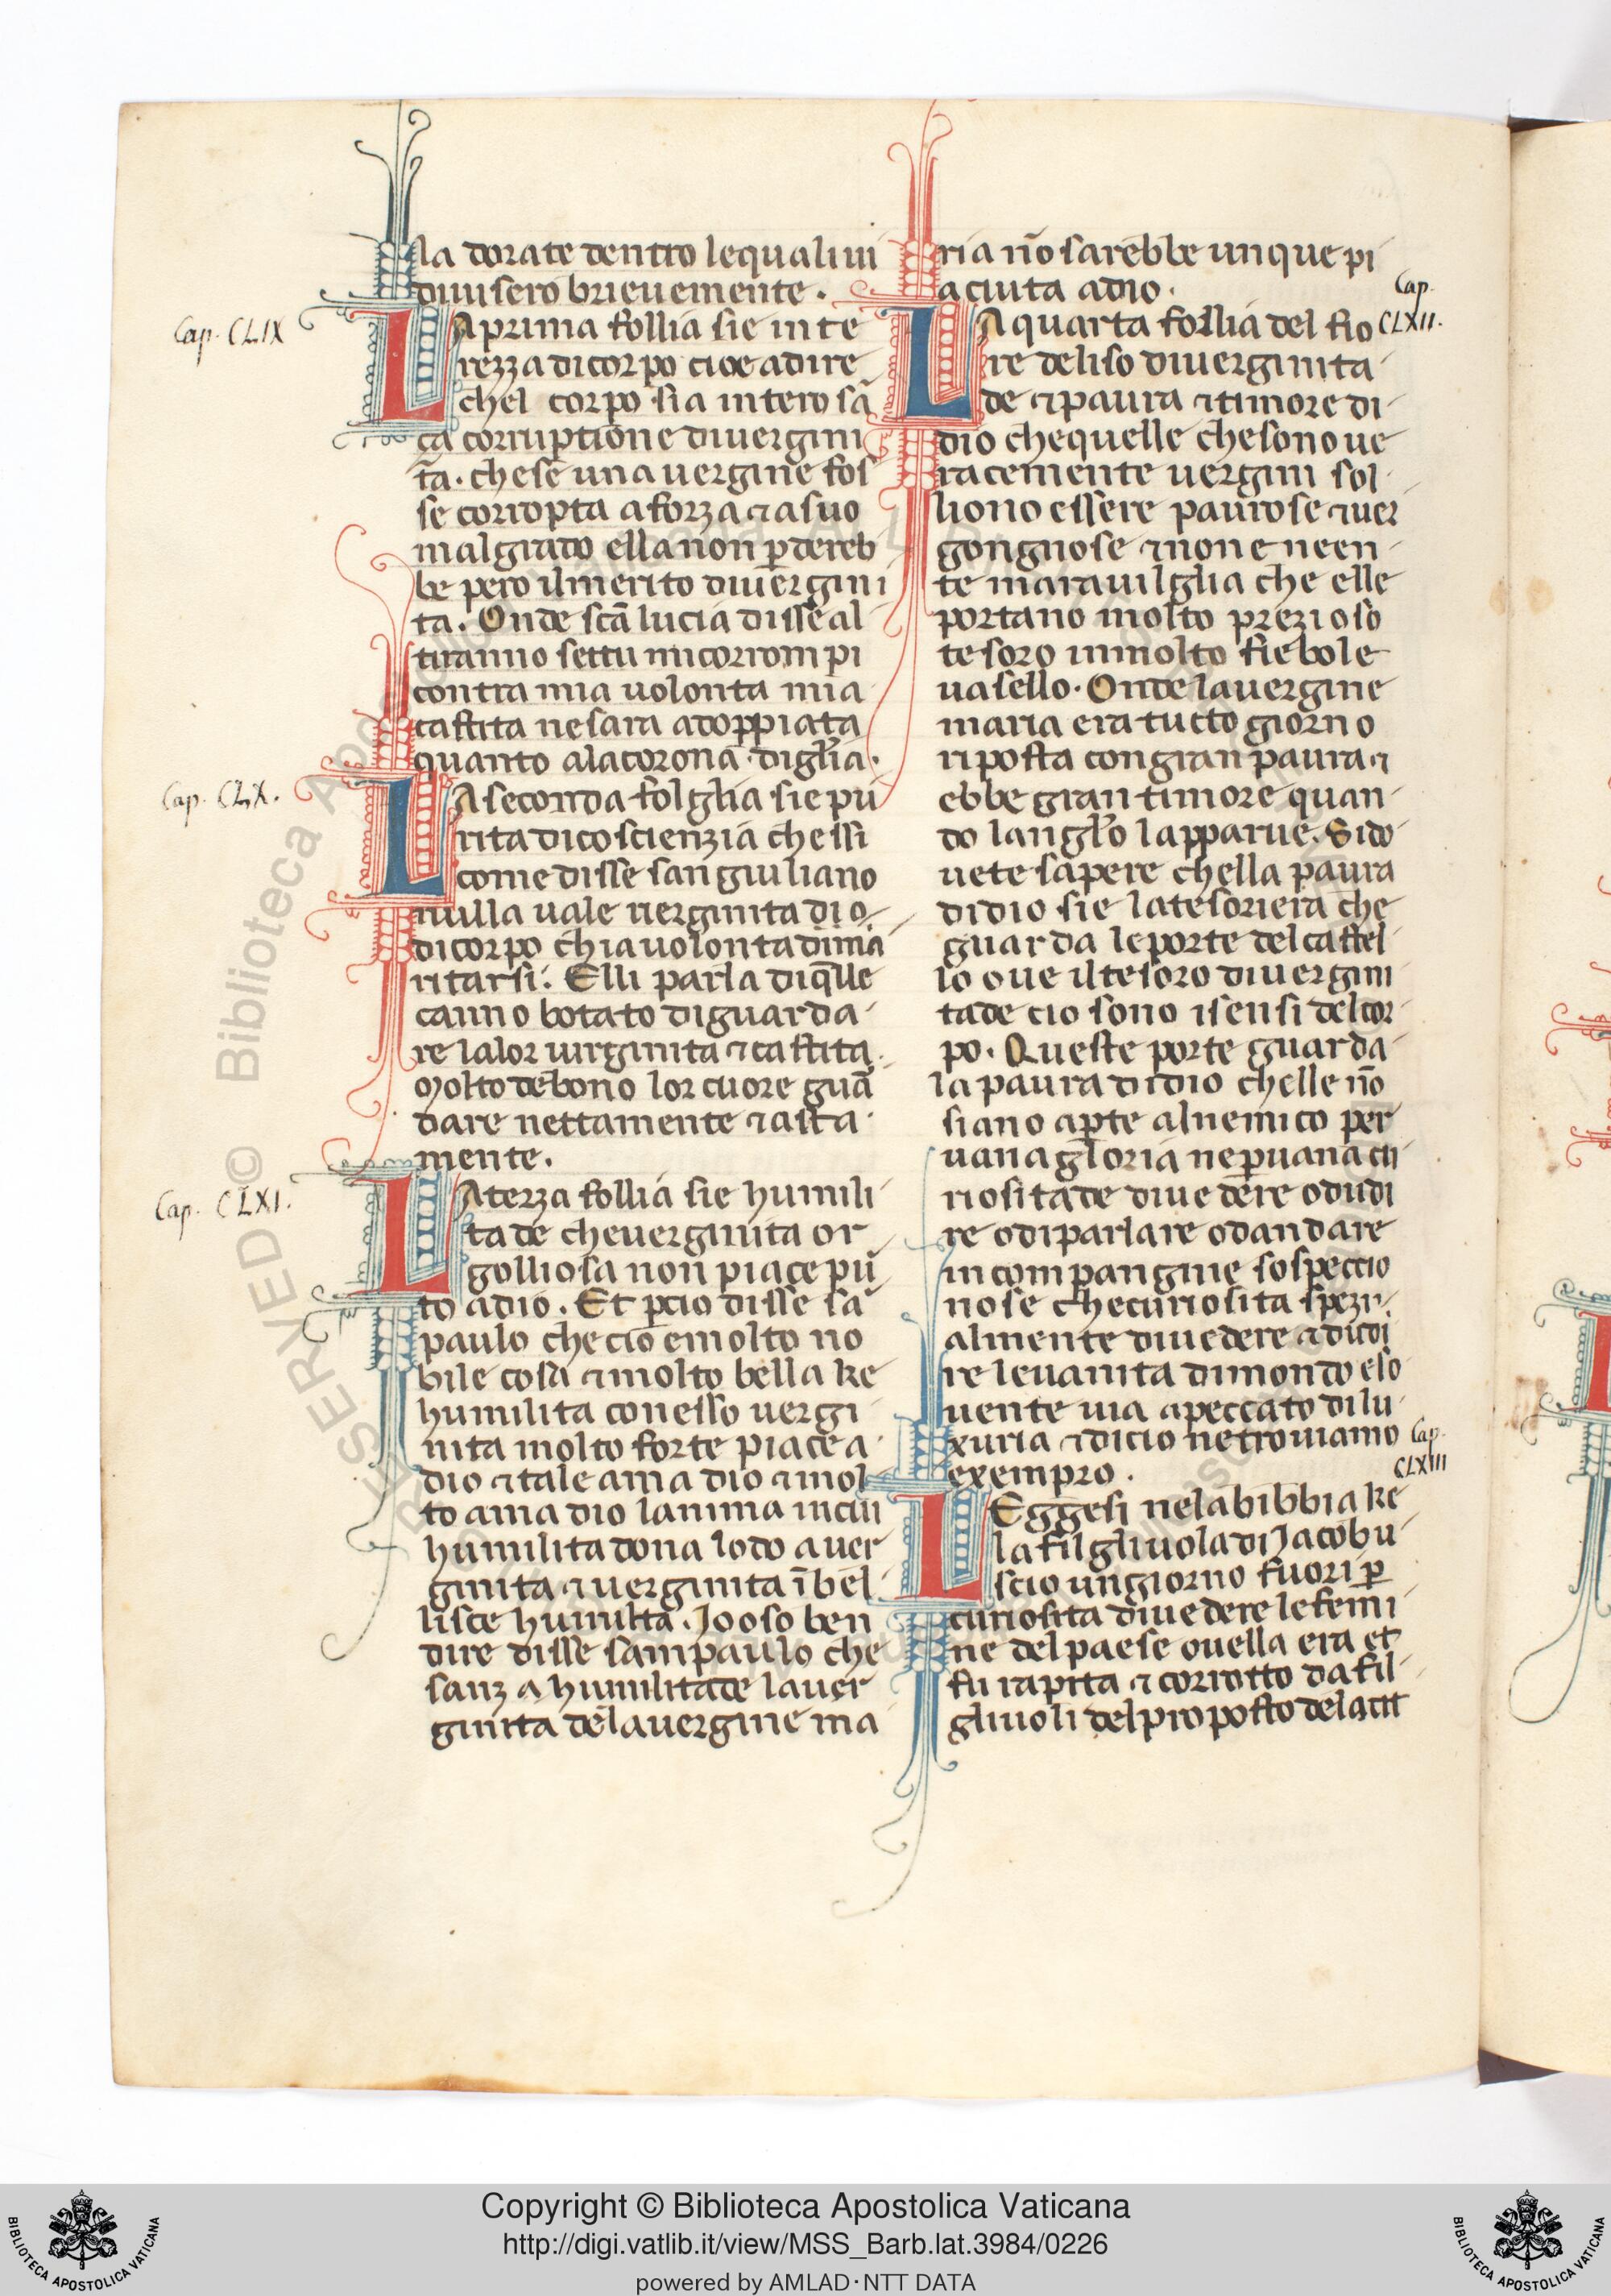 la dorate dentro lequali ui
diuisero brieuemente.
Cap. CLIX
LA prima follia sie inte
rezza di corpo cioe adire
chel corpo sia intero sā
ça corruptione diuergini
tā. chese una uergine fos
se corropta aforza ⁊ asuo
malgrado ella non ꝑdereb
be pero ilmerito diuergini
ta. Onde scā lucia disse al
tiranno settu micorrompi
contra mia uolonta mia
castita nesara adoppiata
quanto ala corona diglīa.
Cap. CLX.
LA seconda folglia sie pu
rita dicoscienzia che ssi
come disse san giuliano
nulla uale uerginita di
dicorpo chia uolonta dimā
ritarsi. Elli parla diq̄lle
canno botato diguarda
re lalor uirginita ⁊ castita.
Molto debono lor cuore guā
dare nettamente ⁊ asta
mente.
Cap. CLXI.
LA terza follia sie humili
tade che uerginita or
golliosa non piace pū
to adio. Et ꝑcio disse sā
paulo che cio emolto no
bile cosa ⁊ molto bella ke
humilita conesso uergi
nita molto forte piace a
dio ⁊ tale ama dio ⁊ mol
to ama dio lanima incui
humilita dona lodo a uer
ginita ⁊ uerginita ī bel
lisce humilta. Io oso ben
dire disse sampaulo che
sanza humilitade lauer
ginita dela uergine ma
ria nō sarebbe unque pi
aciuta adio.
Cap.
CLXII.
LA quarta follia del fio
re deliso diuerginita
de ⁊ paura ⁊ timore di
dio chequelle chesono ue
racemente uergini sol
liono essere paurose ⁊ uer
gongnose ⁊ non e neen
te marauilglia che elle
portano molto prezioso
tesoro in molto fiebole
uasello. Onde lauergine
maria era tutto giorno
riposta con gran paura ⁊
ebbe gran timore quan
do langl̄o lapparue. Sido
uete sapere chella paura
didio sie latesoriera che
guarda leporte del castel
lo oue il tesoro diuergini
tade cio sono i sensi delcor
po. Queste porte guarda
la paura didio chelle nō
siano aꝑte alnemico per
uana gloria ne ꝑuana cu
riositade diuedere odudi
re odiparlare odandare
in compangnie sospeccio
nose che curiosita spezi
almente diuedere ⁊ dudi
re leuanita dimondo eso
uente uia apeccato dilu
xuria ⁊ dicio netrouiamo
exempro.
Cap.
CLXIII
LEggesi nela bibbia ke
la filgliuola di Jacob u
scio un giorno fuori ꝑ
curiosita diuedere le femi
ne del paese ouella era et
fu rapita ⁊ corrotto da fil
gliuoli del proposto dela cit
Copyright © Biblioteca Apostolica Vaticana
http://digi.vatlib.it/view/MSS_Barb.lat.3984/0226
powered by AMLAD·NTT DATA
BIBLIOTECA APOSTOLICA VATICANA
BIBLIOTECA APOSTOLICA VATICANA